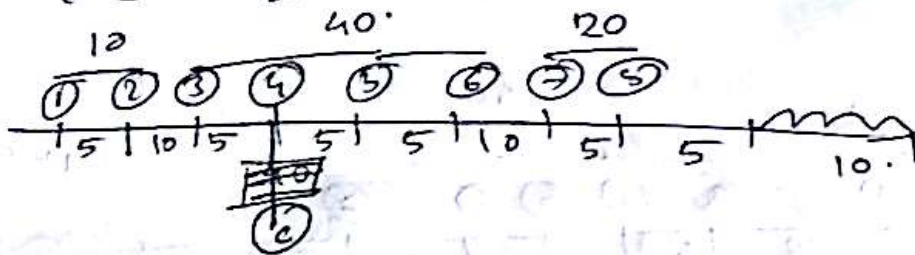 10 40. 20
① ② ③ ④ ⑤ ⑥ ⑦ ⑧
5 10 5 5 5 10 5 5 10.
C